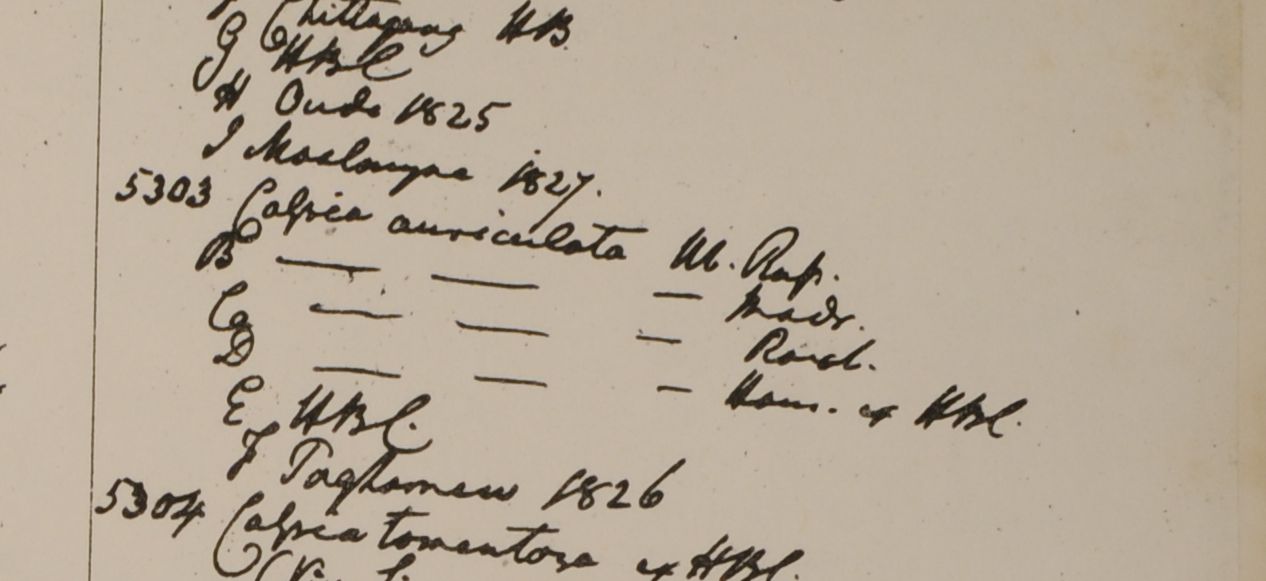 Chittagong HB
G HBC
H Oude 1825
I Moalmyne 1827.
5303 Calpica auriculata W. Rup.
B — — — Madr.
C — — — Roxb.
D — — — Ham. ex HBC.
E HBC.
F Taghamew 1826
5304 Calpica tomentosa ex HBC.